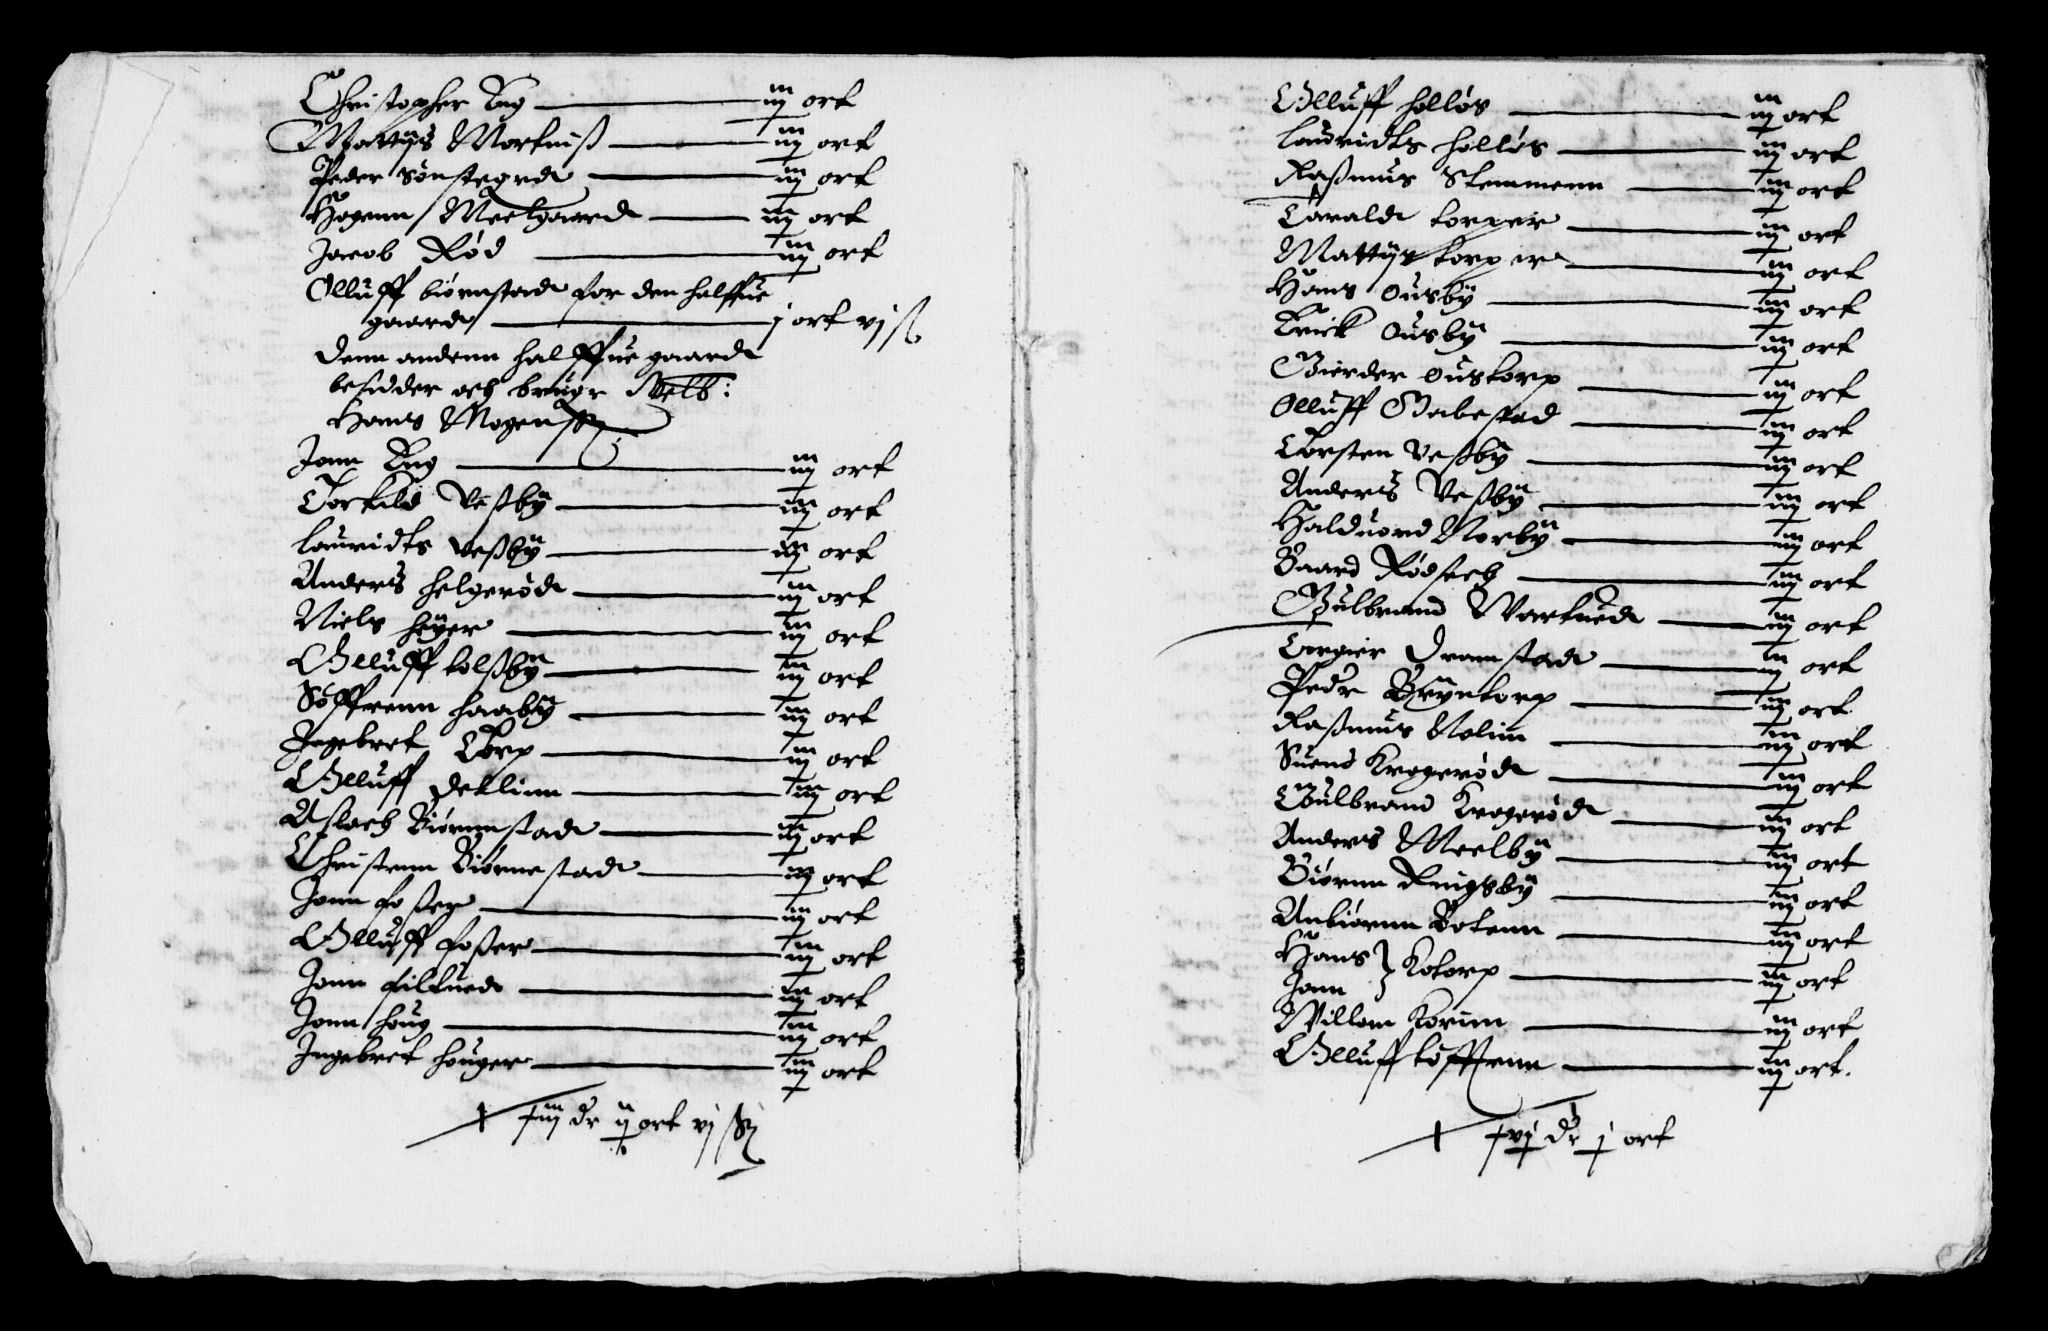 Christopher Ring iij ort
Mattijs Morteniß iij ort
Peder Sønstegrd iij ort
Hogenn Meelgaard iij ort
Jacob Rød iij ort
Olluff biørnstad for den halffue
gaard j ort vj ß
Denn andenn halffue gaard
besidder och brugr Welb:
Hans Mogenß
Jonn Ring iij ort
Torkild Veßbÿ iij ort
Lauridts Veßbÿ iij ort
Anders helgerød iij ort
Niels høÿer iij ort
Olluff kolßbÿ iij ort
Søffrenn haabÿ iij ort
Ingebret Torp iij ort
Olluff Deklinn iij ort
Aslach Biørnstad iij ort
Christenn Biørnestad iij ort
Jonn foßer iij ort
Olluff foßer iij ort
Jonn filtued iij ort
Jonn houg iij ort
Ingebret houger iij ort
xiiij dr ij ort vj ß
Olluff holløs iij ort
Lauridts holløs iij ort
Raßmus Stemmenn iij ort
Tarald torper iij ort
Mattijs torper iij ort
Hans Ousbÿ iij ort
Erick Ousbÿ iij ort
Gierder Oustorp iij ort
Olluff Gabestad iij ort
Torsten Veßbÿ iij ort
Anders Veßbÿ iij ort
Halduord Nørbÿ iij ort
Baard Rødsech iij ort
Gulbrand Wartued iij ort
Torgier Dramstad iij ort
Pedr Brÿntorp iij ort
Raßmus Nolim iij ort
Suend Krogerød iij ort
Gulbrand Krogerød iij ort
Anders Meelbÿ iij ort
Biørnn Ringsbÿ iij ort
Anbiørnn Botenn iij ort
Hans
Jonn } Kotorp iij ort
Willom Korim iij ort
Olluff tøfftenn iij ort.
xvij dr j ort